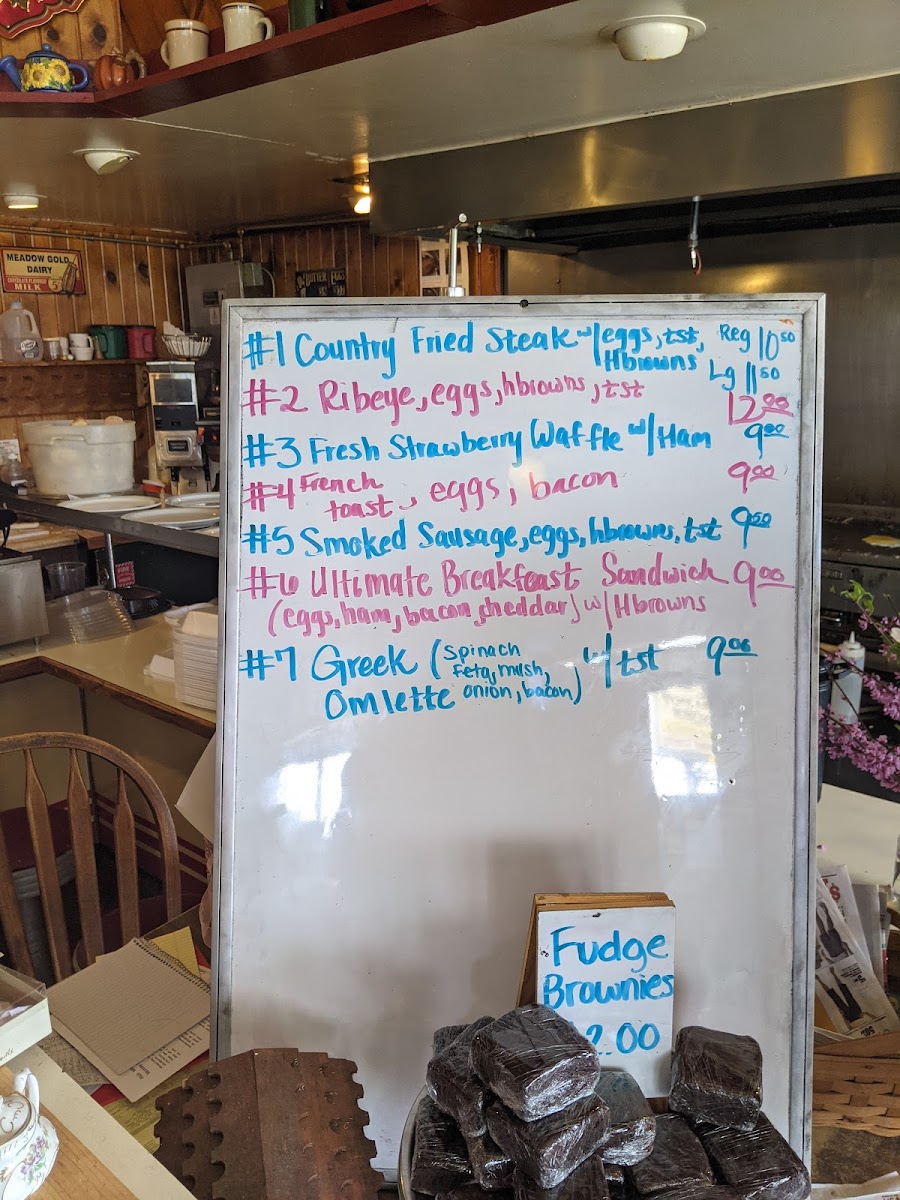 MEADOW GOLD
DAIRY
CHOCOLATE FLAVORED
MILK 5¢
BUTTER EGGS
#1 Country Fried Steak w/eggs, tst, Hbrowns Reg 10.50
Lg 11.50
#2 Ribeye, eggs, hbrowns, tst 12.00
#3 Fresh Strawberry Waffle w/Ham 9.00
#4 French toast, eggs, bacon 9.00
#5 Smoked Sausage, eggs, hbrowns, tst 9.50
#6 Ultimate Breakfeast Sandwich 9.00
(eggs, ham, bacon, cheddar) w/Hbrowns
#7 Greek (Spinach Feta, mush, w/tst 9.00
Omlette onion, bacon)
Fudge
Brownies
2.00